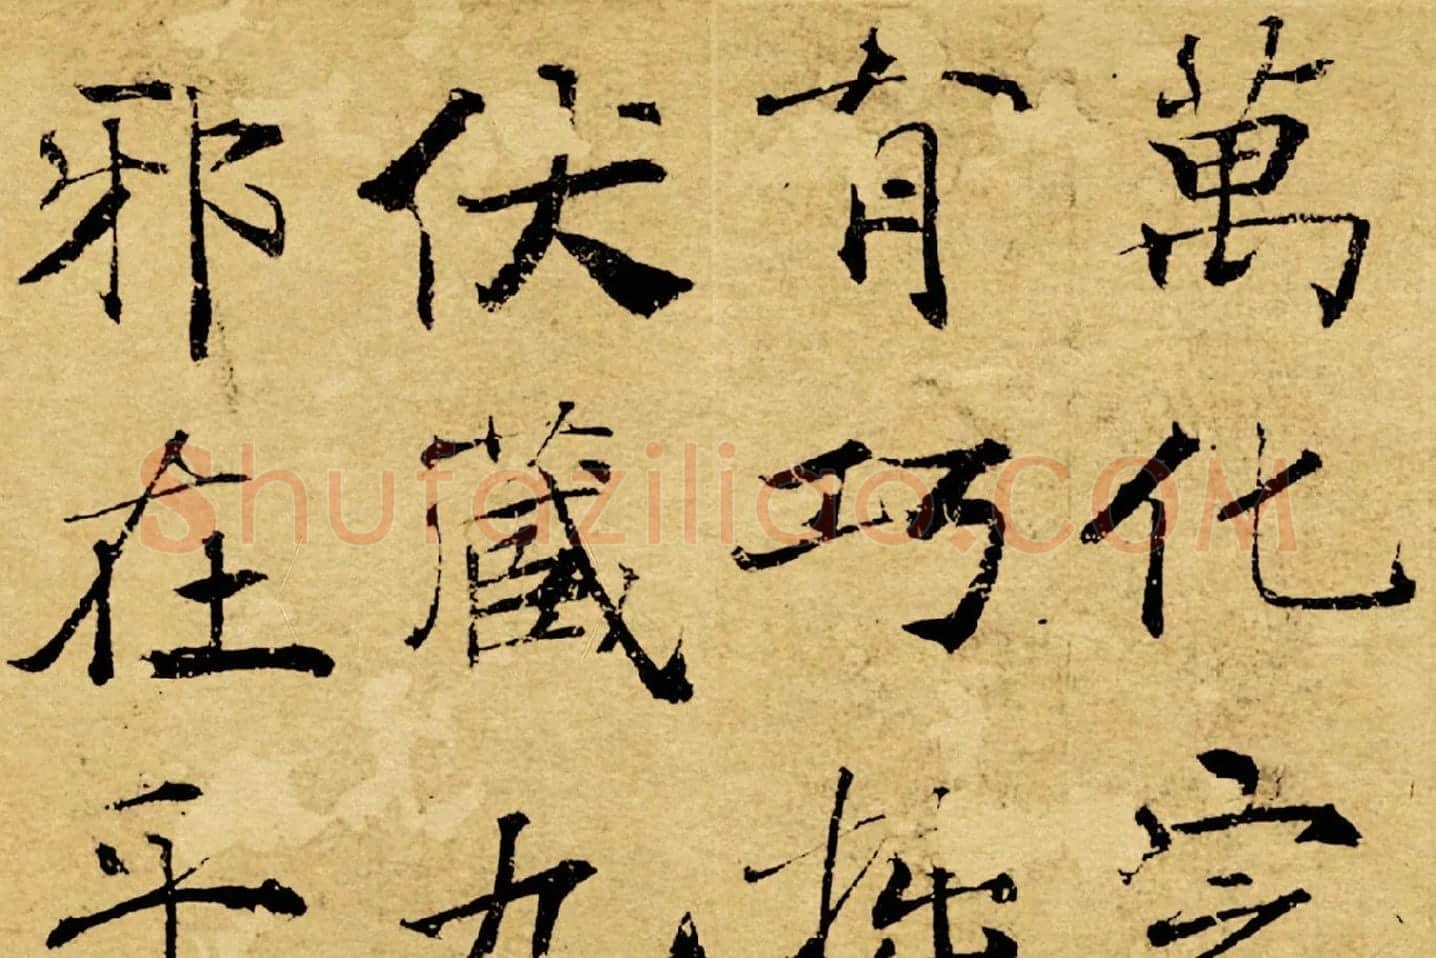 萬化定
有巧拙
伏藏九
邪在乎
Shufaziliao.COM